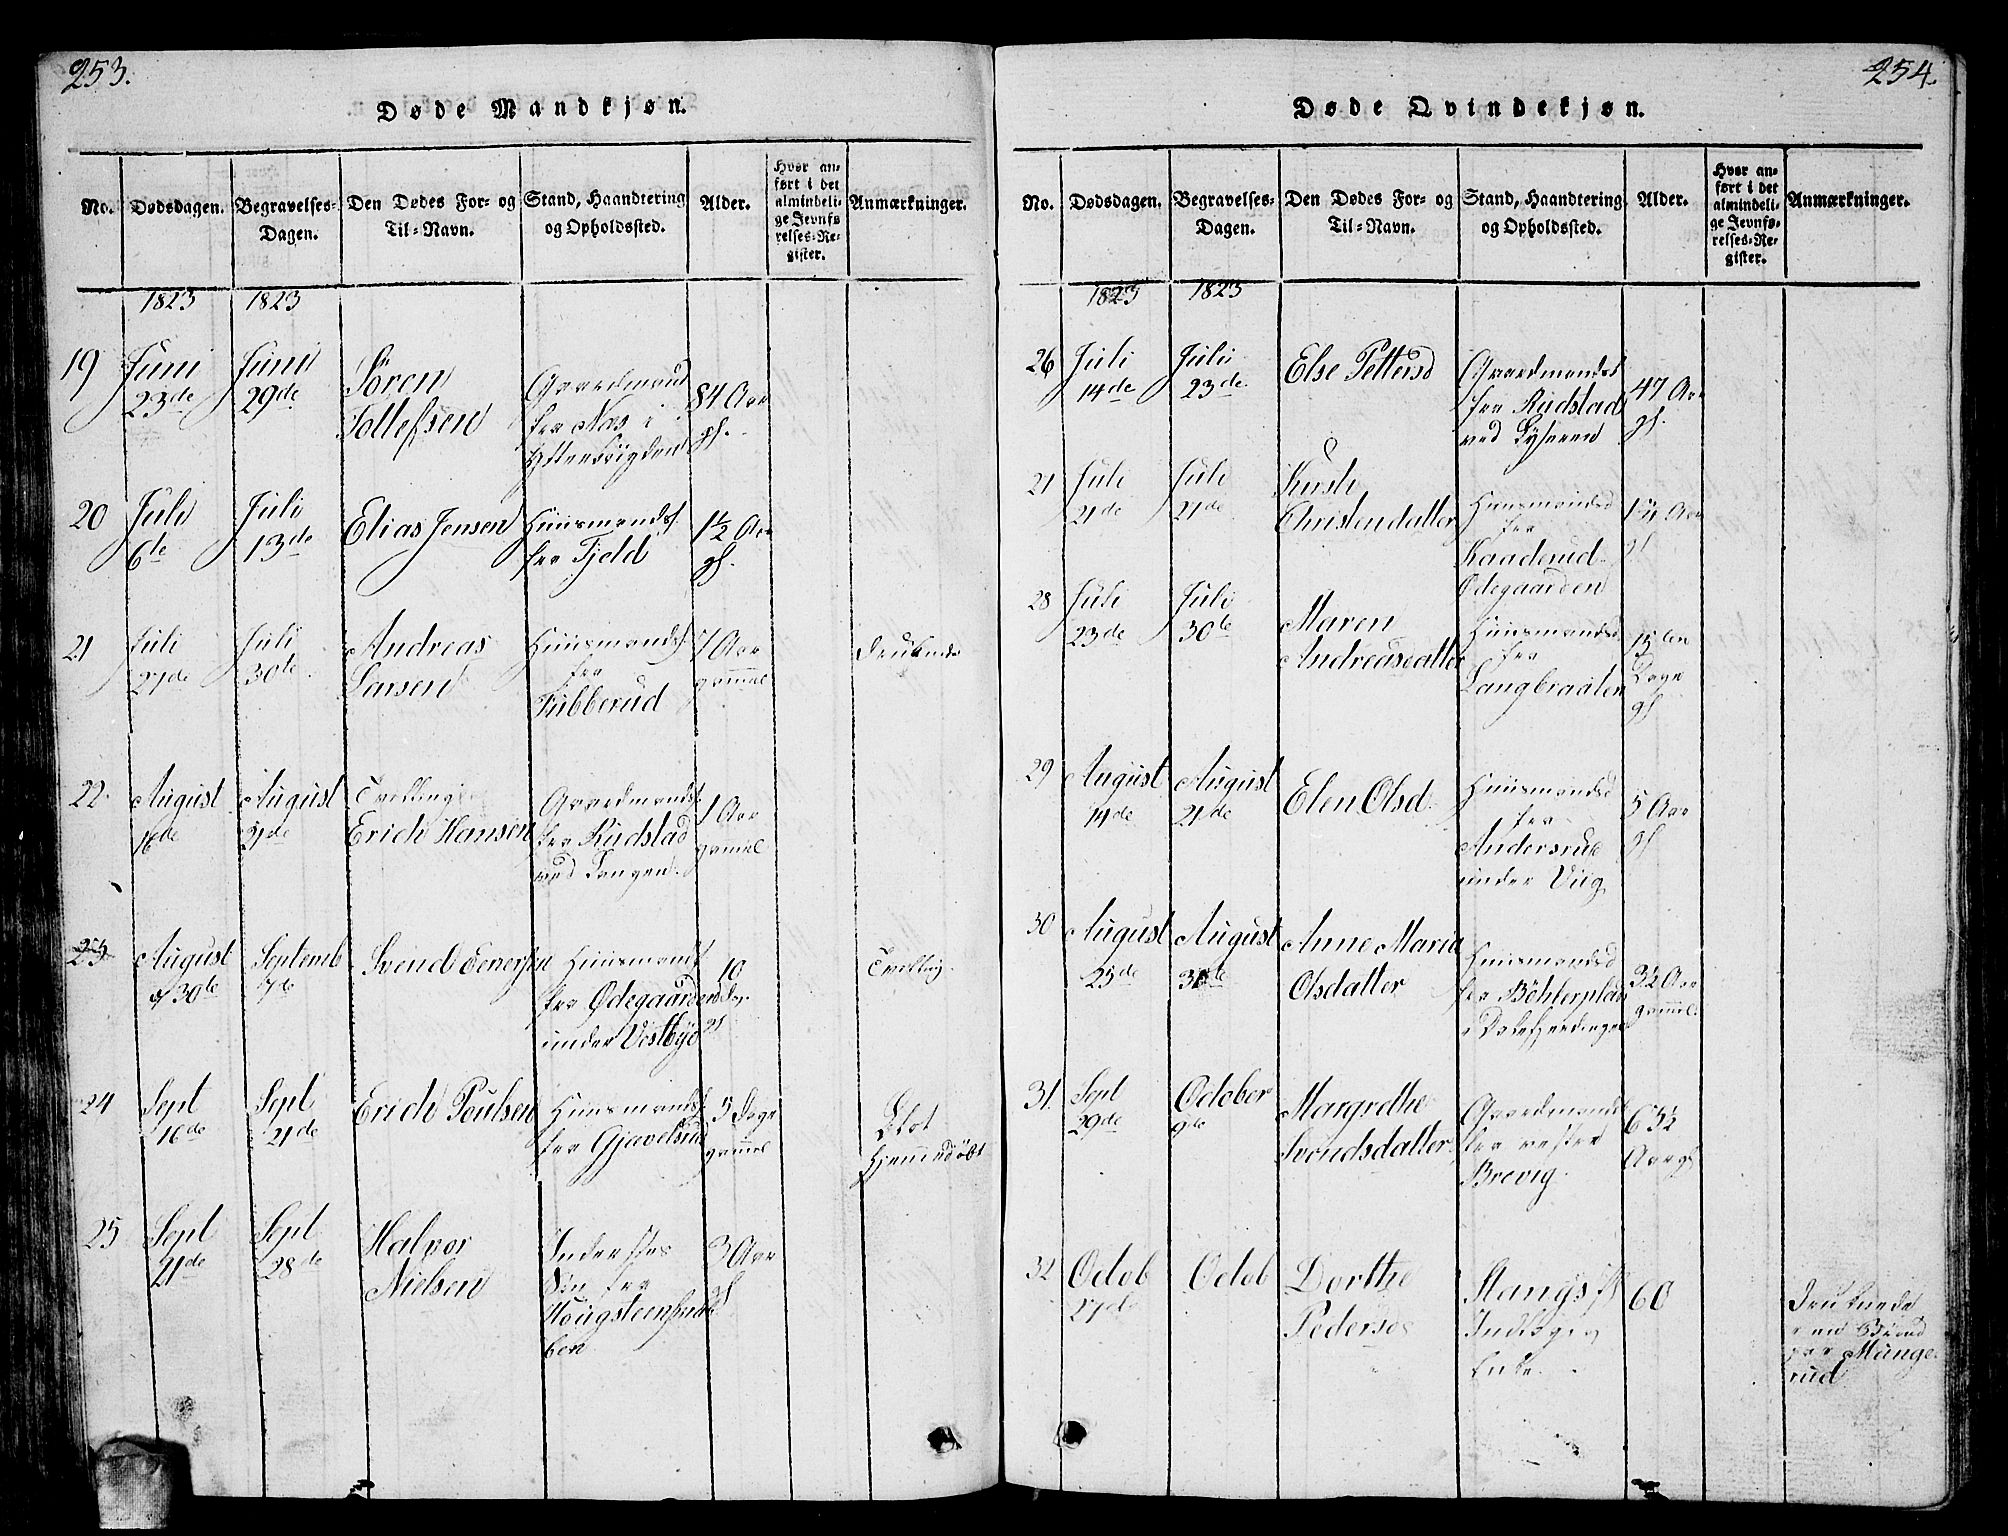 253.
Døde Mandkjøn.
No.
Dødsdagen.
Begravelses-
Dagen.
Den Dødes For- og
Til-Navn.
Stand, Haandtering
og Opholdssted.
Alder.
Hvor an-
ført i det
almindeli-
ge Jevnfø-
relses-Re-
gister.
Anmærkninger.
1823
1823
19
Juni
23de
Juni
29de
Sören
Tollefsen
Gaardmand
fra Næs i
84 Aar
gl.
20
Juli
6te
Juli
13de
Elias Jensen
Huusmands
fra Fjeld
1½ Aar
gl.
21
Juli
27de
Juli
30te
Andreas
Larsen
Huusmands
fra
Fubberud
7 Aar
gammel
Druknede
22
August
16de
August
21de
Tvelling
Erich Hansen
Gaardmands
fra Rudstad
ved Tangen.
1 Aar
gammel
23
August
30te
Septemb
7de
Svend Eenersen
Huusmands
fra Ødegaarden
under Vestbye
10
Dg.
gl
Tvelling.
24
Sept
16de
Sept
21de
Erich Poulsen
Huusmands
fra Gjavelsrud
5 Dage
gammel
Blot
Hjemmedöbt
25
Sept
21de
Sept
28de
Halvor
Nielsen
Inderstes
Sön fra
Hougsteenbak
ken
3 Aar
gl
254.
Døde Qvindekjøn.
No.
Dødsdagen.
Begravelses-
Dagen.
Den Dødes For- og
Til-Navn.
Stand, Haandtering
og Opholdssted.
Alder.
Hvor an-
ført i det
almindeli-
ge Jevnfø-
relses-Re-
gister.
Anmærkninger.
1823
1823
26
Juli
14de
Juli
23de
Else Pettersd
Gaardmands
fra Rudstad
ved Lyseren
47 Aar
gl.
27
Juli
21de
Juli
27de
Kirsti
Christendatter
Huusmandsd
fra
Kaaderud
Ødegaarden
Aar
gl
28
Juli
23de
Juli
30te
Maren
Andreasdatter
Huusmandsd
fra
Langbraaten
15ten
Dage
gl
29
August
14de
August
21de
Elen Olsd.
Huusmandsd
fra
Andersrud
under Viig
5 Aar
gl
30
August
25de
August
31te
Anne Maria
Olsdatter
Huusmandsd
fra Böhlerplads
3½ Aar
gammel.
31.
Sept
29de
October
9de
Margrethe
Svendsdatter
Gaardmands
fra vestre
Brevig
63½
Aar gl
32
Octob
27de
Octob
Dorthe
Pederse
Enke.
60
Druknede
i en Brönd
paa Munge-
rud